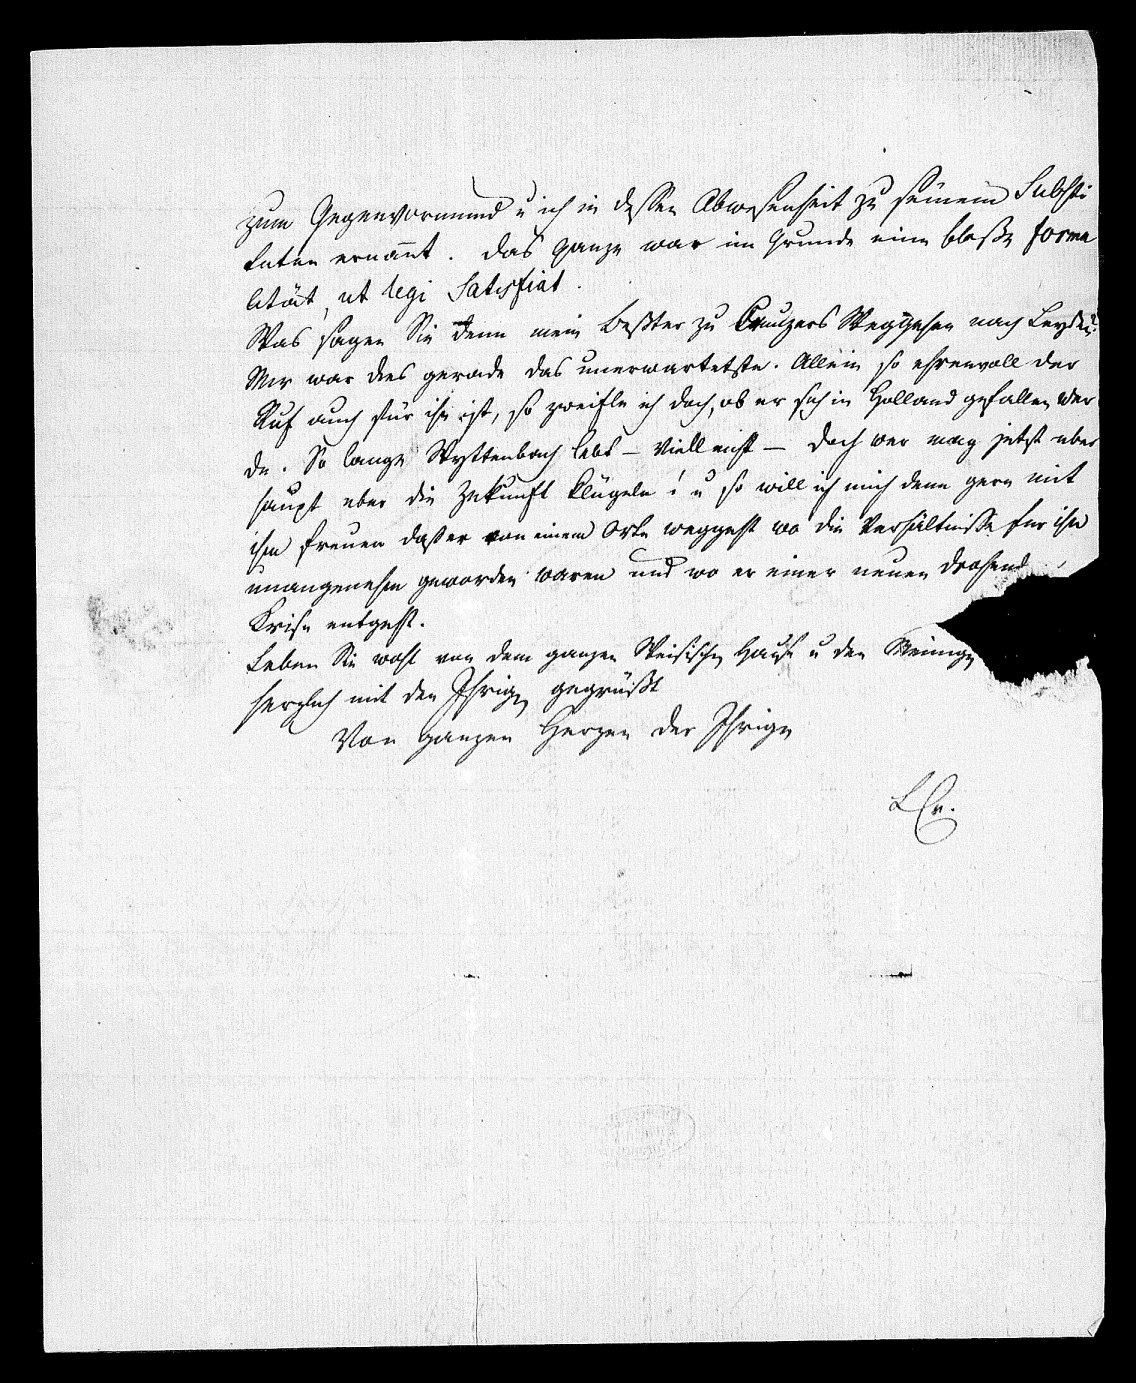 zum Gegenvormund u ich in dessen Abwesenheit zu seinem Substi
tuten ernañt. Das ganze war im Grunde eine bloße Forma
lität, ut legi Satisfiat.
Was sagen Sie denn mein Beßter zu Creuzers Weggehen nach Leyden?
Mir war dies gerade das unerwartetste. Allein so ehrenvoll der
Ruf auch für ihn ist, so zweifle ich doch, ob er sich in Holland gefallen wer
de. So lange Wyttenbach lebt – Vielleicht – Doch wer mag jetzt uber
haupt uber die Zukunft klügeln! u so will ich mich denn gern mit
ihm freuen daß er von einem Orte weggeht wo die Verhältnisse fur ihn
unangenehm geworden waren und wo er einer neuen drohend
Krise entgeht.
Leben Sie wohl von dem ganzen Weisischen Hause u den Meinigen
herzlich mit den Ihrigen gegrüßt
Von ganzen Herzen der Ihrige
LCr.